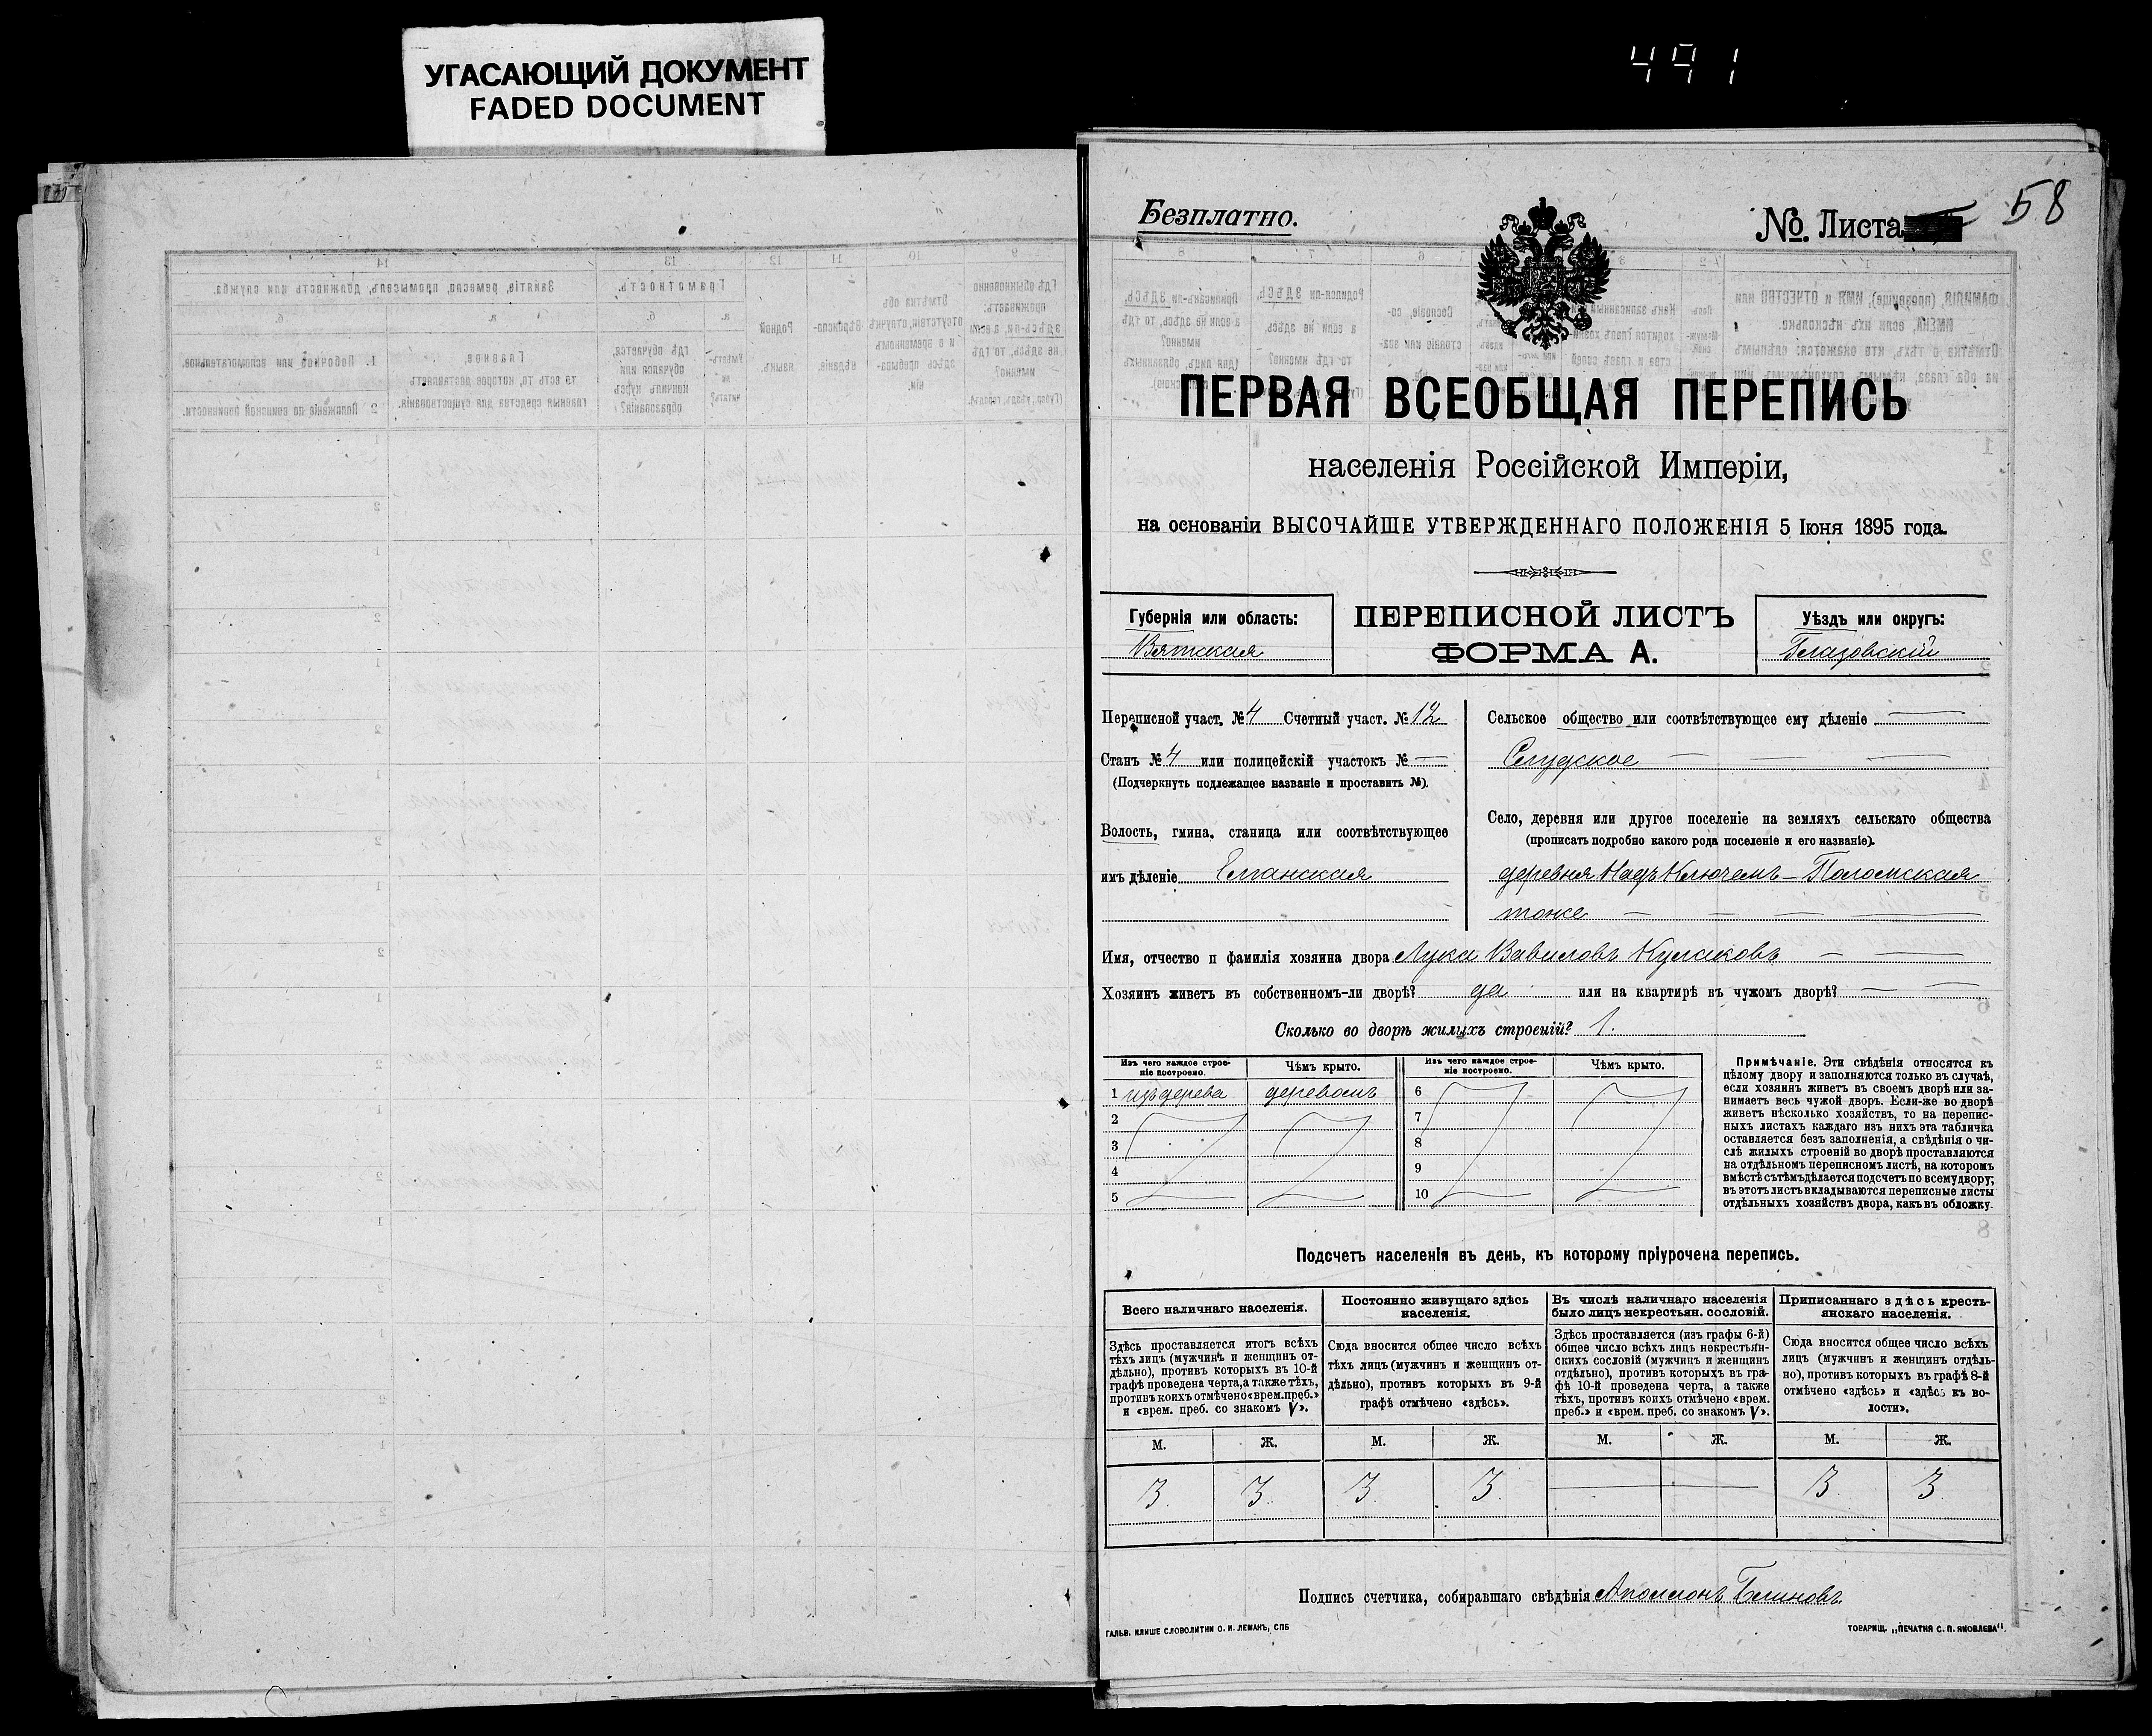 УГАСАЮЩИЙ ДОКУМЕНТ
FADED DOCUMENT
491
Безплатно.
№. Листа 58
ПЕРВАЯ ВСЕОБЩАЯ ПЕРЕПИСЬ
населенія Россійской Имперіи,
на основаніи ВЫСОЧАЙШЕ УТВЕРЖДЕННАГО ПОЛОЖЕНІЯ 5 Іюня 1895 года.
Губернія или область:
Вятская
ПЕРЕПИСНОЙ ЛИСТЪ
ФОРМА А.
Уѣздъ или округъ:
Глазовскій
Переписной участ. № 4 Счетный участ. № 12
Станъ № 4 или полицейскій участокъ № —
(Подчеркнуть подлежащее названіе и проставить №).
Волость, гмина, станица или соотвѣтствующее
имъ дѣленіе Еланская
Сельское общество или соотвѣтствующее ему дѣленіе —
Слудское — — —
Село, деревня или другое поселеніе на земляхъ сельскаго общества
(прописать подробно какого рода поселеніе и его названіе).
деревня Надъ Ключемъ — Поломская
тоже — — — —
Имя, отчество и фамилія хозяина двора Лука Вавиловъ Кулаковъ — —
Хозяинъ живетъ въ собственномъ-ли дворѣ? да или на квартирѣ въ чужомъ дворѣ? — —
Сколько во дворѣ жилыхъ строеній? 1.
Изъ чего каждое строе-
ніе построено.
Чѣмъ крыто.
Изъ чего каждое строе-
ніе построено.
Чѣмъ крыто.
1 изъ дерева деревомъ 6
2 7
3 8
4 9
5 10
Примѣчаніе. Эти свѣдѣнія относятся къ
цѣлому двору и заполняются только въ случаѣ,
если хозяинъ живетъ въ своемъ дворѣ или за-
нимаетъ весь чужой дворъ. Если-же во дворѣ
живетъ нѣсколько хозяйствъ, то на перепис-
ныхъ листахъ каждаго изъ нихъ эта табличка
оставляется безъ заполненія, а свѣдѣнія о чи-
слѣ жилыхъ строеній во дворѣ проставляются
на отдѣльномъ переписномъ листѣ, на которомъ
вмѣстѣ съ тѣмъ дѣлается подсчетъ по всему двору;
въ этотъ листъ вкладываются переписные листы
отдѣльныхъ хозяйствъ двора, какъ въ обложку.
Подсчетъ населенія въ день, къ которому пріурочена перепись.
Всего наличнаго населенія.
Здѣсь проставляется итогъ всѣхъ
тѣхъ лицъ (мужчинъ и женщинъ от-
дѣльно), противъ которыхъ въ 10-й
графѣ проведена черта, а также тѣхъ,
противъ коихъ отмѣчено «врем. преб.»
и «врем. преб. со знакомъ V».
Постоянно живущаго здѣсь
населенія.
Сюда вносится общее число всѣхъ
тѣхъ лицъ (мужчинъ и женщинъ от-
дѣльно), противъ которыхъ въ 9-й
графѣ отмѣчено «здѣсь».
Въ числѣ наличнаго населенія
было лицъ некрестьян. сословій.
Здѣсь проставляется (изъ графы 6-й)
общее число всѣхъ лицъ некрестьян-
скихъ сословій (мужчинъ и женщинъ
отдѣльно), противъ которыхъ въ гра-
фѣ 10-й проведена черта, а также
тѣхъ, противъ коихъ отмѣчено «врем.
преб.» и «врем. преб. со знакомъ V».
Приписаннаго здѣсь кресть-
янскаго населенія.
Сюда вносится общее число всѣхъ
лицъ (мужчинъ и женщинъ отдѣль-
но), противъ которыхъ въ графѣ 8-й
отмѣчено «здѣсь» и «здѣсь къ во-
лости».
М. Ж. М. Ж. М. Ж. М. Ж.
3. 3. 3. 3. — — 3. 3.
Подпись счетчика, собиравшаго свѣдѣнія Аполлонъ Блиновъ
ГАЛЬВ. КЛИШЕ СЛОВОЛИТНИ О. И. ЛЕМАНЪ, СПБ
ТОВАРИЩ. „ПЕЧАТНЯ С. П. ЯКОВЛЕВА“.